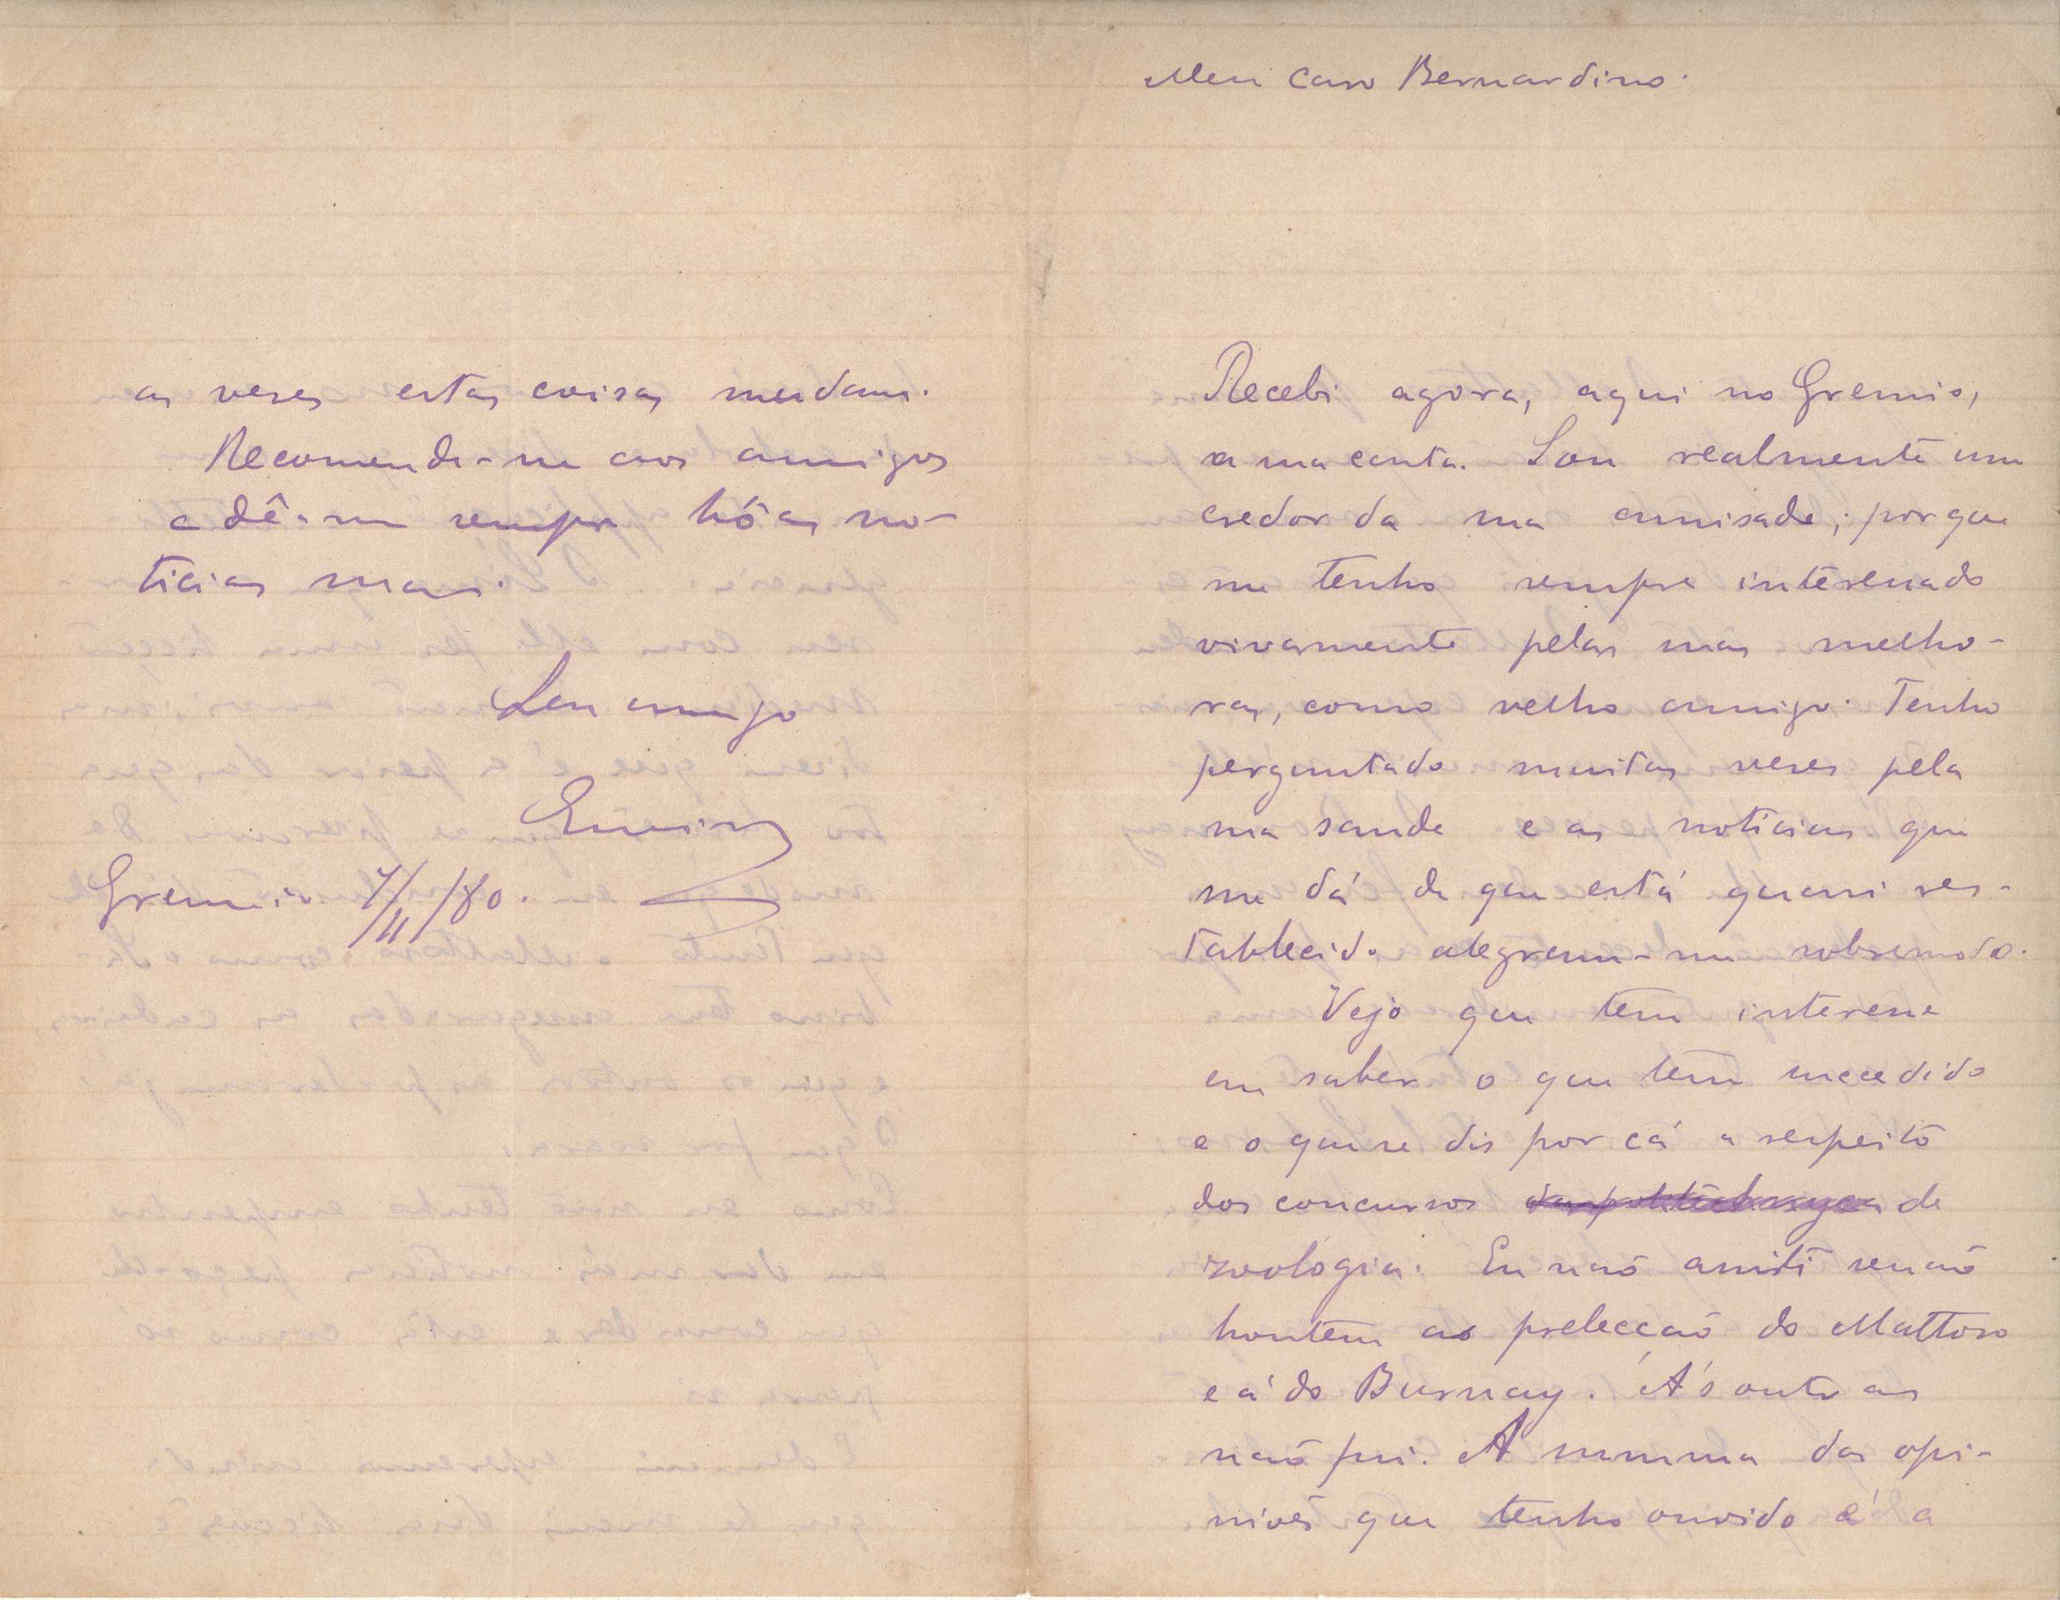 Meu caro Bernardino.
Recebi agora, aqui no Gremio,
a sua carta. Sou realmente um
credor da sua amisade; porque
me tenho sempre interessado
vivamente pelas suas melho-
ras, como velho amigo. Tenho
perguntado muitas veses pela
sua saude e as noticias que
me dá de que está quasi res-
tablecido alegram-me sobremodo.
Vejo que tem interesse
em saber o que tem succedido
e o que se dis por cá a respeito
dos concursos de
zoologia. Eu naõ assisti senaõ
hontem as prelecçaõ do Mattoso
e á do Burnay. Á's outras
naõ fui. A summa das opi-
niões que tenho ouvido é a
as veses estas coisas mudam.
Recomende-me aos amigos
e dê-me sempre bôas no-
ticias suas.
Seu amigo
Gremio 7/11/80.